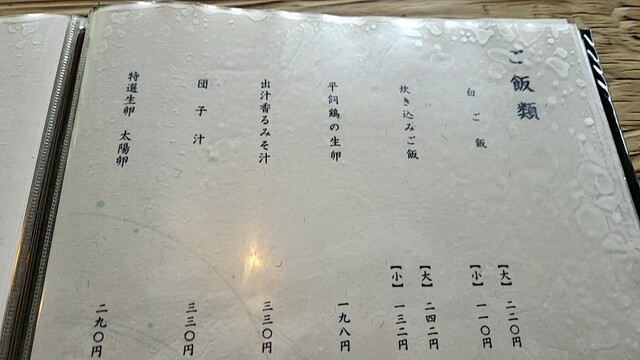 ご飯類
白ご飯
【大】二二〇円
【小】一一〇円
炊き込みご飯
【大】二四二円
【小】一三二円
平飼鶏の生卵
一九八円
出汁香るみそ汁
三三〇円
団子汁
三三〇円
特選生卵 太陽卵
二九〇円